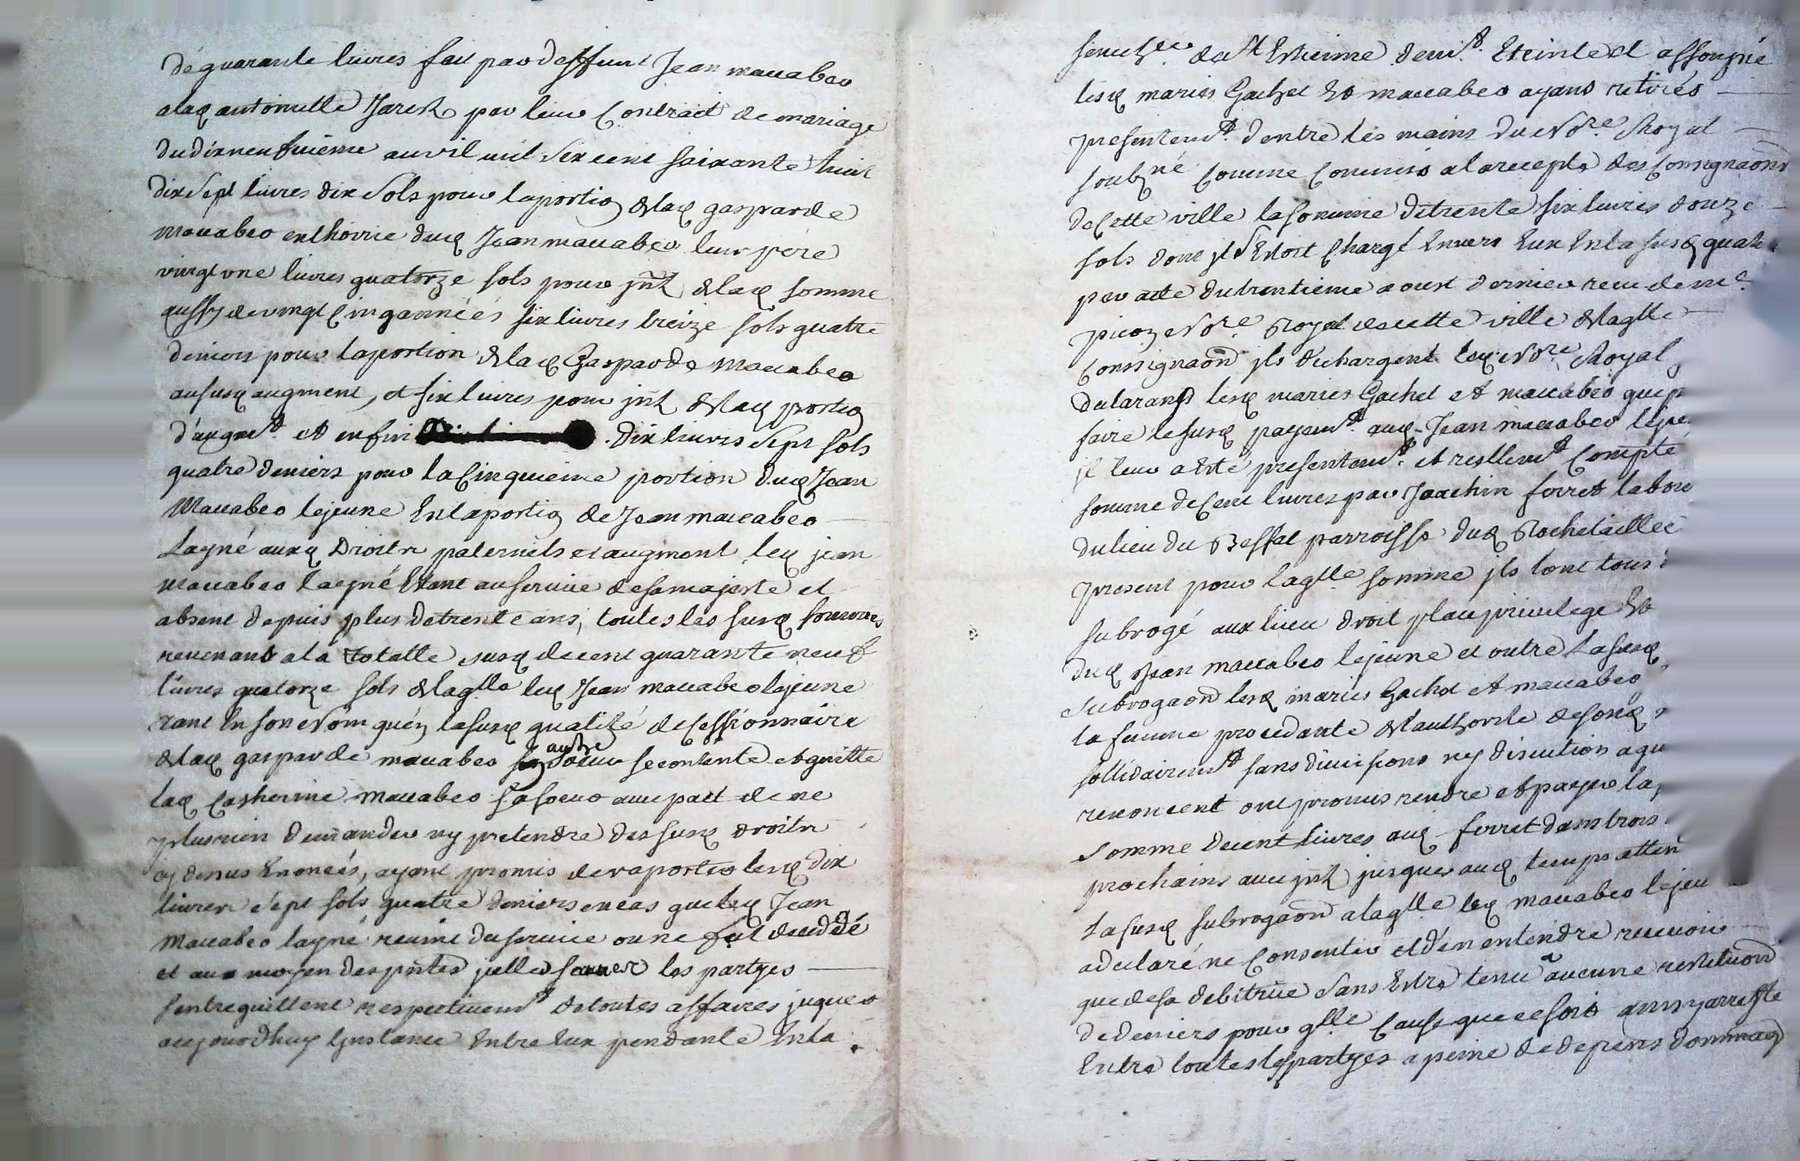 de quarante livres fait par deffunt Jean maccabeo
a laq antoinette Jarest par leur Contract de mariage
du dix neufvieme avvil mil six cent soixante huit
dix sept livres dix sols pour la portion de laq gasparde
maccabeo en lhoirie dud Jean maccabeo leur père
vingt une livres quatorze sols pour jnt de laq somme
aussy de vingt Cinq années six livres treize sols quatre
deniers pour la portion de laq Gasparde Maccabeo
au susq augment, et six livres pour jnt de laq portion
d'augmt. et enfin dix livres sept sols
quatre deniers pour la Cinquieme portion duq Jean
Maccabeo lejeune En la portion de Jean maccabeo
Layné auxq Droits paternels et augment leq jean
maccabeo layné Etant au service de sa majesté et
absent depuis plus de trente ans, toutes les susq sommes
revenant a la totalle susq de cent quarante neuf
livres quatorze sols de laqlle leq Jean maccabeo lejeune
tant En son nom qu'en la susq qualité de Cessionnaire
de laq gasparde maccabeo son autre soeur se contente et quitte
laq Catherine Maccabeo sa soeur avec pact de ne
plus rien demander ny pretendre des susq droits
cy dessus Enoncés, ayant promis de raporter lesq dix
livres sept sols quatre deniers en cas que leq Jean
Maccabeo layné revint du service ou ne fut decedé
et au moyen des pntes jcelles les partyes
s'entrequittent respectivemt de toutes affaires jusques
a aujourdhuy Instance Entre Eux pendante En la
senechee de St Estienne demt. Eteinte et assoupie
lesq mariés Gachet Et maccabeo ayant retirés
presentemt. d'entre les mains du Nore Royal
soubzné Comme Commis a la recepte des Consignaons
de Cette ville la somme de trente six livres douze
sols dont jl s'Estoit Chargé Envers Eux En la susq qualité
par acte du trentieme aoust dernier receu de me
picon Nore Royal de cette ville de laqlle
Consignaon jls dechargent leq Nore Royal
lesq mariés Gachet et maccabeo
faire le susq payemt. auq Jean maccabeo leje
jl leur a Esté presentemt. et reellemt Compté
somme de Cent livres par Joachin ferret labou
du lieu du Bessat parroisse duq Rochetaillée
present pour laqlle somme jls lont tous
subrogé aux lieu droit place privilege Et
duq Jean maccabeo lejeune et outre La susq
subrogaon lesq mariés Gachet et maccabeo
la femme procedante de lauthorité de sonq
sollidairemt sans divisions ny discution a qu
renoncent ont promis rendre et payer la
somme de cent livres auq ferret dans trois
prochains avec jnt jusques auq temps atten
La susq subrogaon a laqlle leq maccabeo lejeu
a declaré ne Consentir et d'en entendre recevoir
que de sa debitrice sans Estre tenu a aucune restitution
de deniers pour qlle Cause que ce soit
Entre toutes les partyes a peine de depens dommaq